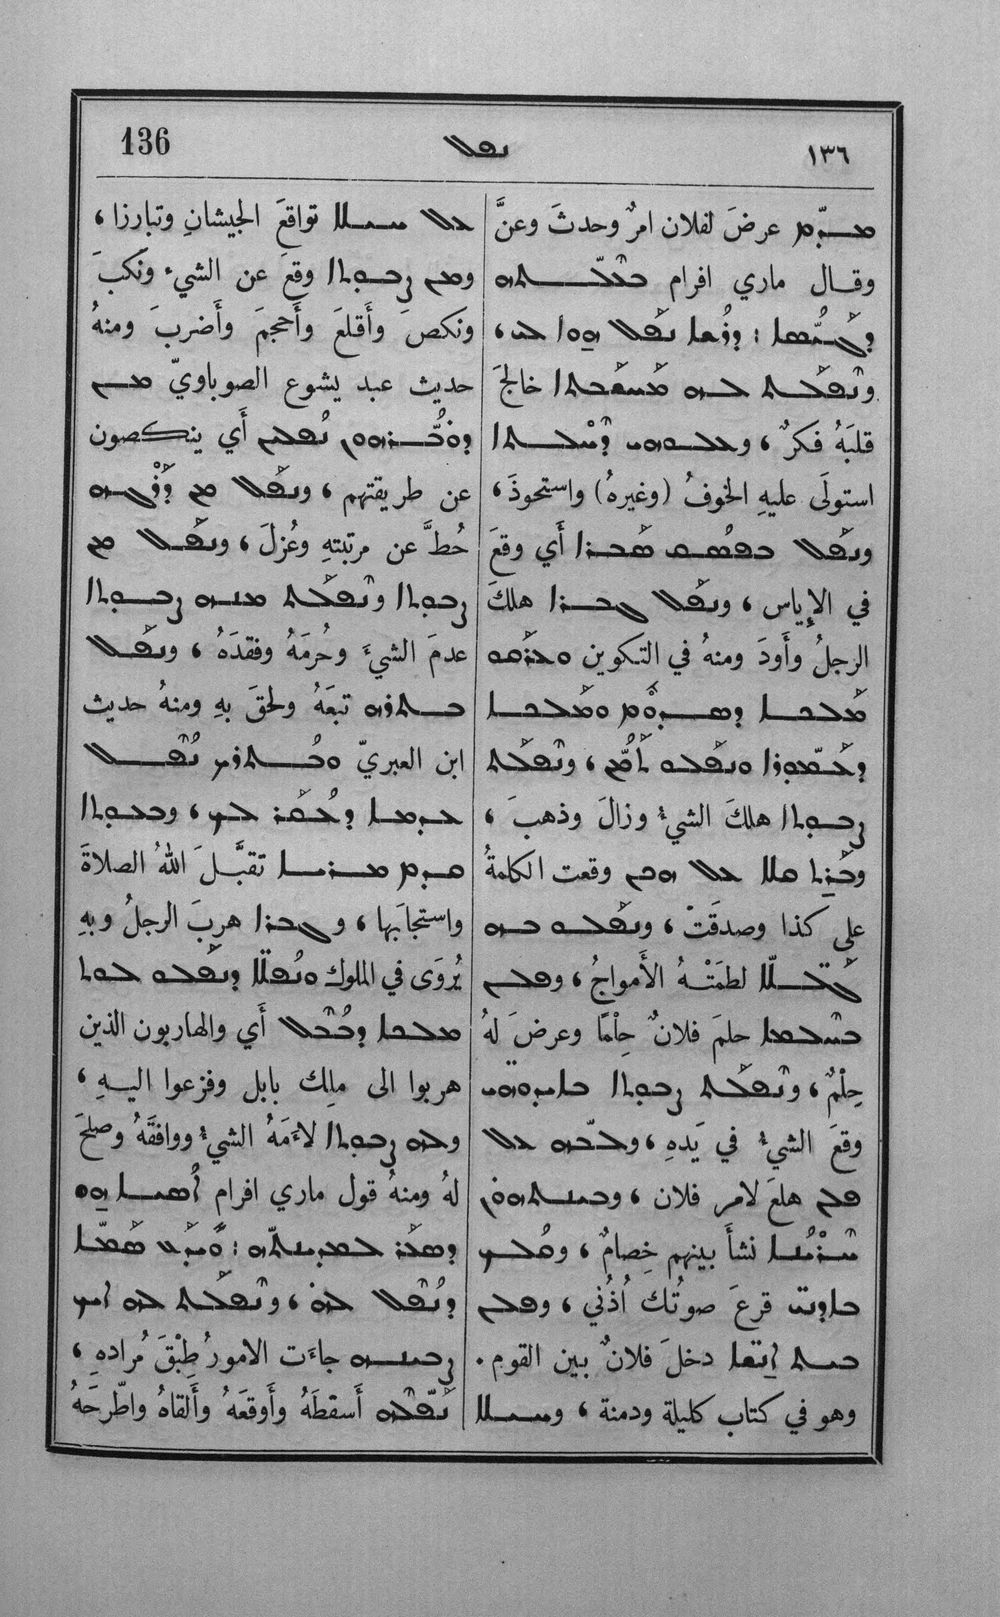 136
ܢܦܠ
١٣٦
ܡܕܡ عرضَ لفلان امرٌ وحدثَ وعنَّ
وقال ماري افرام
ܢܦܠ ܗܘܐ ܒܝ ،
ܘܢܦܠܬ ܒܗ ܡܚܫܒܬܐ خالجَ
قلبَهُ فكرٌ ، ܘܥܠܘܗܝ ܕܚܠܬܐ
استولَى عليهِ الخوفُ (وغيرهُ) واستحوذَ ،
ܘܢܦܠ ܒܦܣܩ ܣܒܪܐ أَي وقعَ
في الإِياس ، ܘܢܦܠ ܓܒܪܐ هلكَ
الرجلُ وأَودَ ومنهُ في التكوين ܘܥܪܩܘ
ܡܠܟܐ ܕܣܕܘܡ ܘܡܠܟܐ
ܕܥܡܘܪܐ ܘܢܦܠܘ ܬܡܢ ، ܘܢܦܠܬ
ܨܒܘܬܐ هلكَ الشيءُ وزالَ وذهبَ ،
ܘܒܪܬ ܩܠܐ ܥܠ ܗܟܢ وقعت الكلمةُ
على كذا وصدقَتْ ، ܘܢܦܠܘ ܒܗ
ܓܠܠܐ لطمَتْهُ الأَمواجُ ، ܘܦܠܢ
ܒܚܠܡܐ حلمَ فلانٌ حِلْمًا وعرضَ لهُ
حِلْمٌ ، ܘܢܦܠܬ ܨܒܘܬܐ ܒܐܝܕܘܗܝ
وقعَ الشيءُ في يَدهِ ، ܘܠܒܗ ܥܠ
ܦܠܢ هلعَ لامر فلان ، ܘܒܝܢܬܗܘܢ
ܚܪܝܢܐ نشأَ بينهم خِصامٌ ، ܘܩܠܟ
ܒܐܕܢܝ قرعَ صوتُك أُذُني ، ܘܦܠܢ
ܒܝܬ ܐܢܫܐ دخلَ فلانٌ بين القوم .
وهو في كتاب كليلة ودمنة ، ܘܚܝܠܐ
ܥܠ ܚܝܠܐ تواقعَ الجيشانِ وتبارزا ،
ܘܡܢ ܨܒܘܬܐ وقعَ عن الشيء ونكبَ
ونكصَ وأَقلعَ وأَحجمَ وأَضربَ ومنهُ
حديث عبد يشوع الصوباويّ ܡܢ
ܢܦܠܝܢ أَي ينكصون
عن طريقتهم ، ܘܢܦܠ ܡܢ ܕܪܓܗ
حُطَّ عن مرتبتهِ وعُزلَ ، ܘܢܦܠ ܡܢ
ܨܒܘܬܐ ܘܢܦܠܬ ܡܢܗ ܨܒܘܬܐ
عدمَ الشيءَ وحُرمَهُ وفقدَهُ ، ܘܢܦܠ
ܒܬܪܗ تبعَهُ ولحقَ بهِ ومنهُ حديث
ابن العبريّ ܘܒܬܪܟ ܢܦܠ
، ܘܒܥܘܬܐ
ܩܕܡ ܡܪܝܐ تقبَّلَ اللهُ الصلاةَ
واستجابَها ، ܘܓܒܪܐ هربَ الرجلُ وبهِ
يُروَى في الملوك ܘܢܦܠܐ ܕܢܦܠܘ ܠܘܬ
ܡܠܟܐ ܕܒܒܠ أَي والهاربون الذين
هربوا الى ملِك بابل وفزعوا اليهِ ،
ܘܠܗ ܨܒܘܬܐ لاءَمَهُ الشيءُ ووافقَهُ وصلحَ
لهُ ومنهُ قول ماري افرام ܐܣܝܐ ܗܘ
ܕܢܦܠ ܠܗ ، ܘܢܦܠܬ ܠܗ ܐܝܟ
ܨܒܝܢܗ جاءَت الامورُ طِبْقَ مُرادهِ ،
ܢܦܠܗ أَسقطَهُ وأَوقعَهُ وأَلقاهُ واطَّرحَهُ